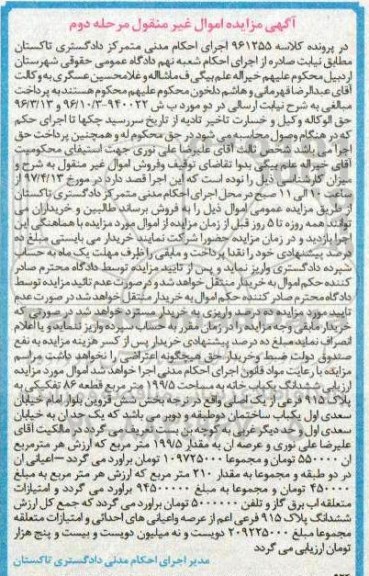 آگهی مزایده اموال غیر منقول مرحله دوم
در پرونده کلاسه ۹۶۱۲۵۵ اجرای احکام مدنی متمرکز دادگستری تاکستان
مطابق نیابت صادره از اجرای احکام شعبه نهم دادگاه عمومی حقوقی شهرستان
اردبیل محکوم علیهم خیراله علم بیگی ف ماشااله و غلامحسین عسگری به وکالت
آقای عبدالرضا قهرمانی و هاشم دلخون محکوم علیهم محکوم هستند به پرداخت
مبالغی به شرح نیابت ارسالی در دو مورد ب ش ۹۴۰۰۲۲-۹۶/۱۰/۳ و ۹۶/۳/۱۳
حق الوکاله وکیل و خسارت تاخیر تادیه از تاریخ سررسید چکها تا اجرای حکم
که در هنگام وصول محاسبه می شود در حق محکوم له و همچنین پرداخت حق
اجرا می باشد شخص ثالث آقای علیرضا علی نوری جهت استیفای محکومیت
آقای خیراله علم بیگی بدوا تقاضای توقیف وفروش اموال غیر منقول به شرح و
میزان کارشناسی ذیل را نوده است که این اجرا قصد دارد در مورخ ۹۷/۴/۱۳
ساعت ۱۰ الی ۱۱ صبح در محل اجرای احکام مدنی متمرکز دادگستری تاکستان
از طریق مزایده عمومی اموال ذیل را به فروش برساند طالبین و خریداران می
توانند همه روزه تا ۵ روز قبل از زمان مزایده از اموال مورد مزایده با هماهنگی این
اجرا بازدید و در زمان مزایده حضورا شرکت نمایند خریدار می بایستی مبلغ ده
درصد پیشنهادی خود را نقدا پرداخت و مابقی را ظرف مهلت یک ماه به حساب
سپرده دادگستری واریز نماید و پس از تایید مزایده توسط دادگاه محترم صادر
کننده حکم اموال به خریدار منتقل خواهد شد و درصورت عدم تائید مزایده توسط
دادگاه محترم صادر کننده حکم اموال به خریدار منتقل خواهد شد در صورت عدم
تایید مورد مزایده ده درصد واریزی به خریدار مسترد خواهد شد در صورتی که
خریدار مابقی وجه مزایده را در زمان مقرر به حساب سپرده واریز ننماید و یا اعلام
انصراف نماید مبلغ ده درصد پیشنهادی خریدار پس از کسر هزینه مزایده به نفع
صندوق دولت ضبط وخریدار حق هیچگونه اعتراضی را نخواهد داشت مراسم
مزایده با رعایت مواد قانون اجرای احکام مدنی اجرا خواهد شد اموال مورد مزایده
ارزیابی ششدانگ یکباب خانه به مساحت ۱۹۹/۵ متر مربع قطعه ۸۶ تفکیکی به
پلاک ۹۱۵ فرعی از یک اصلی واقع در درجه بخش شش قزوین بلوار امام خیابان
سعدی اول یکباب ساختمان دوطبقه و دوبر می باشد که یک حد آن به خیابان
سعدی اول و حد دیگر غربی به کوچه بن بست تعریف می گردد در مالکیت آقای
علیرضا علی نوری و عرصه آن به مقدار ۱۹۹/۵ متر مربع که ارزش هر مترمربع
آن ۵۵۰۰۰۰ تومان و مجموعا ۱۰۹۷۲۵۰۰۰ تومان برآورد می گردد – اعیانی آن
در دو طبقه و مجموعا به مقدار ۲۱۰ متر مربع که ارزش هر متر مربع به مبلغ
۴۵۰۰۰۰ تومان و مجموعا به مبلغ ۹۴۵۰۰۰۰۰ برآورد می گردد و امتیازات
متعلقه آب برق گاز و تلفن ۵۰۰۰۰۰۰ تومان برآورد می گردد که جمع کل ارزش
ششدانگ پلاک ۹۱۵ فرعی اعم از عرصه واعیانی های احداثی و امتیازات متعلقه
مجموعا مبلغ ۲۰۹۲۲۵۰۰۰ دویست و نه میلیون دویست و بیست و پنج هزار
تومان ارزیابی می گردد
مدیر اجرای احکام مدنی دادگستری تاکستان